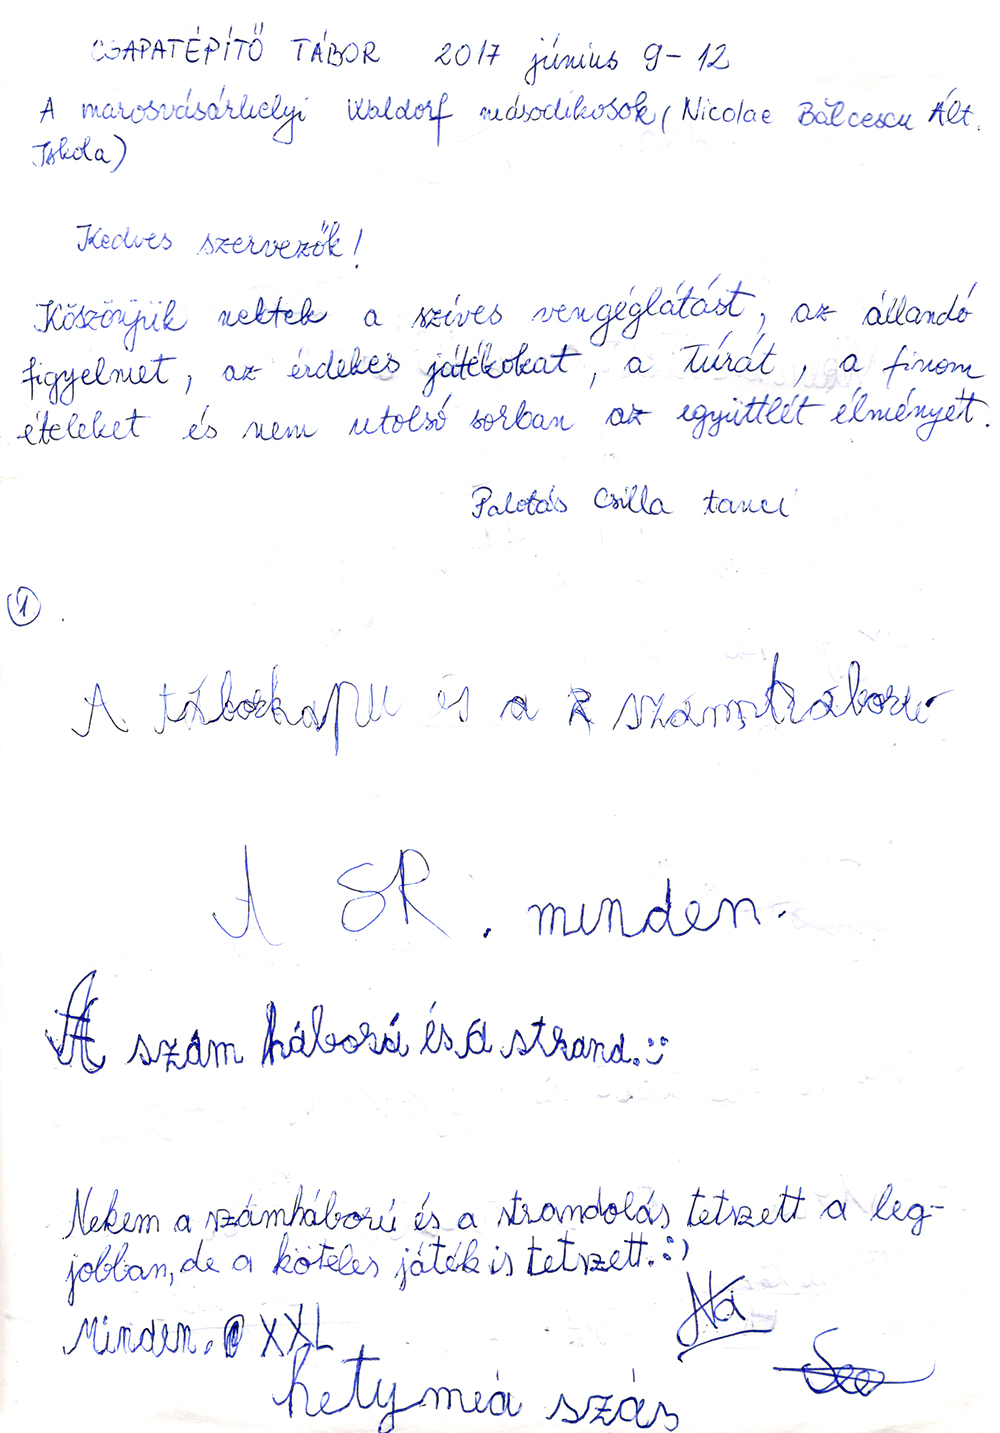 CSAPATÉPÍTŐ TÁBOR 2017 június 9-12
A marosvásárhelyi Waldorf másodikosok (Nicolae Bălcescu Ált.
Iskola)
Kedves szervezők!
Köszönjük nektek a szíves vengéglátást, az állandó
figyelmet, az érdekes játékokat, a túrát, a finom
ételeket és nem utolsó sorban az együttlét élményét.
Palotás Csilla tanci
1.
A táborkapu és a számháboru
A SR. minden.
A szám háború és a strand. :)
Nekem a számháború és a strandolás tetszett a leg-
jobban, de a köteles játék is tetszett. :)
Minden. XXL
szás